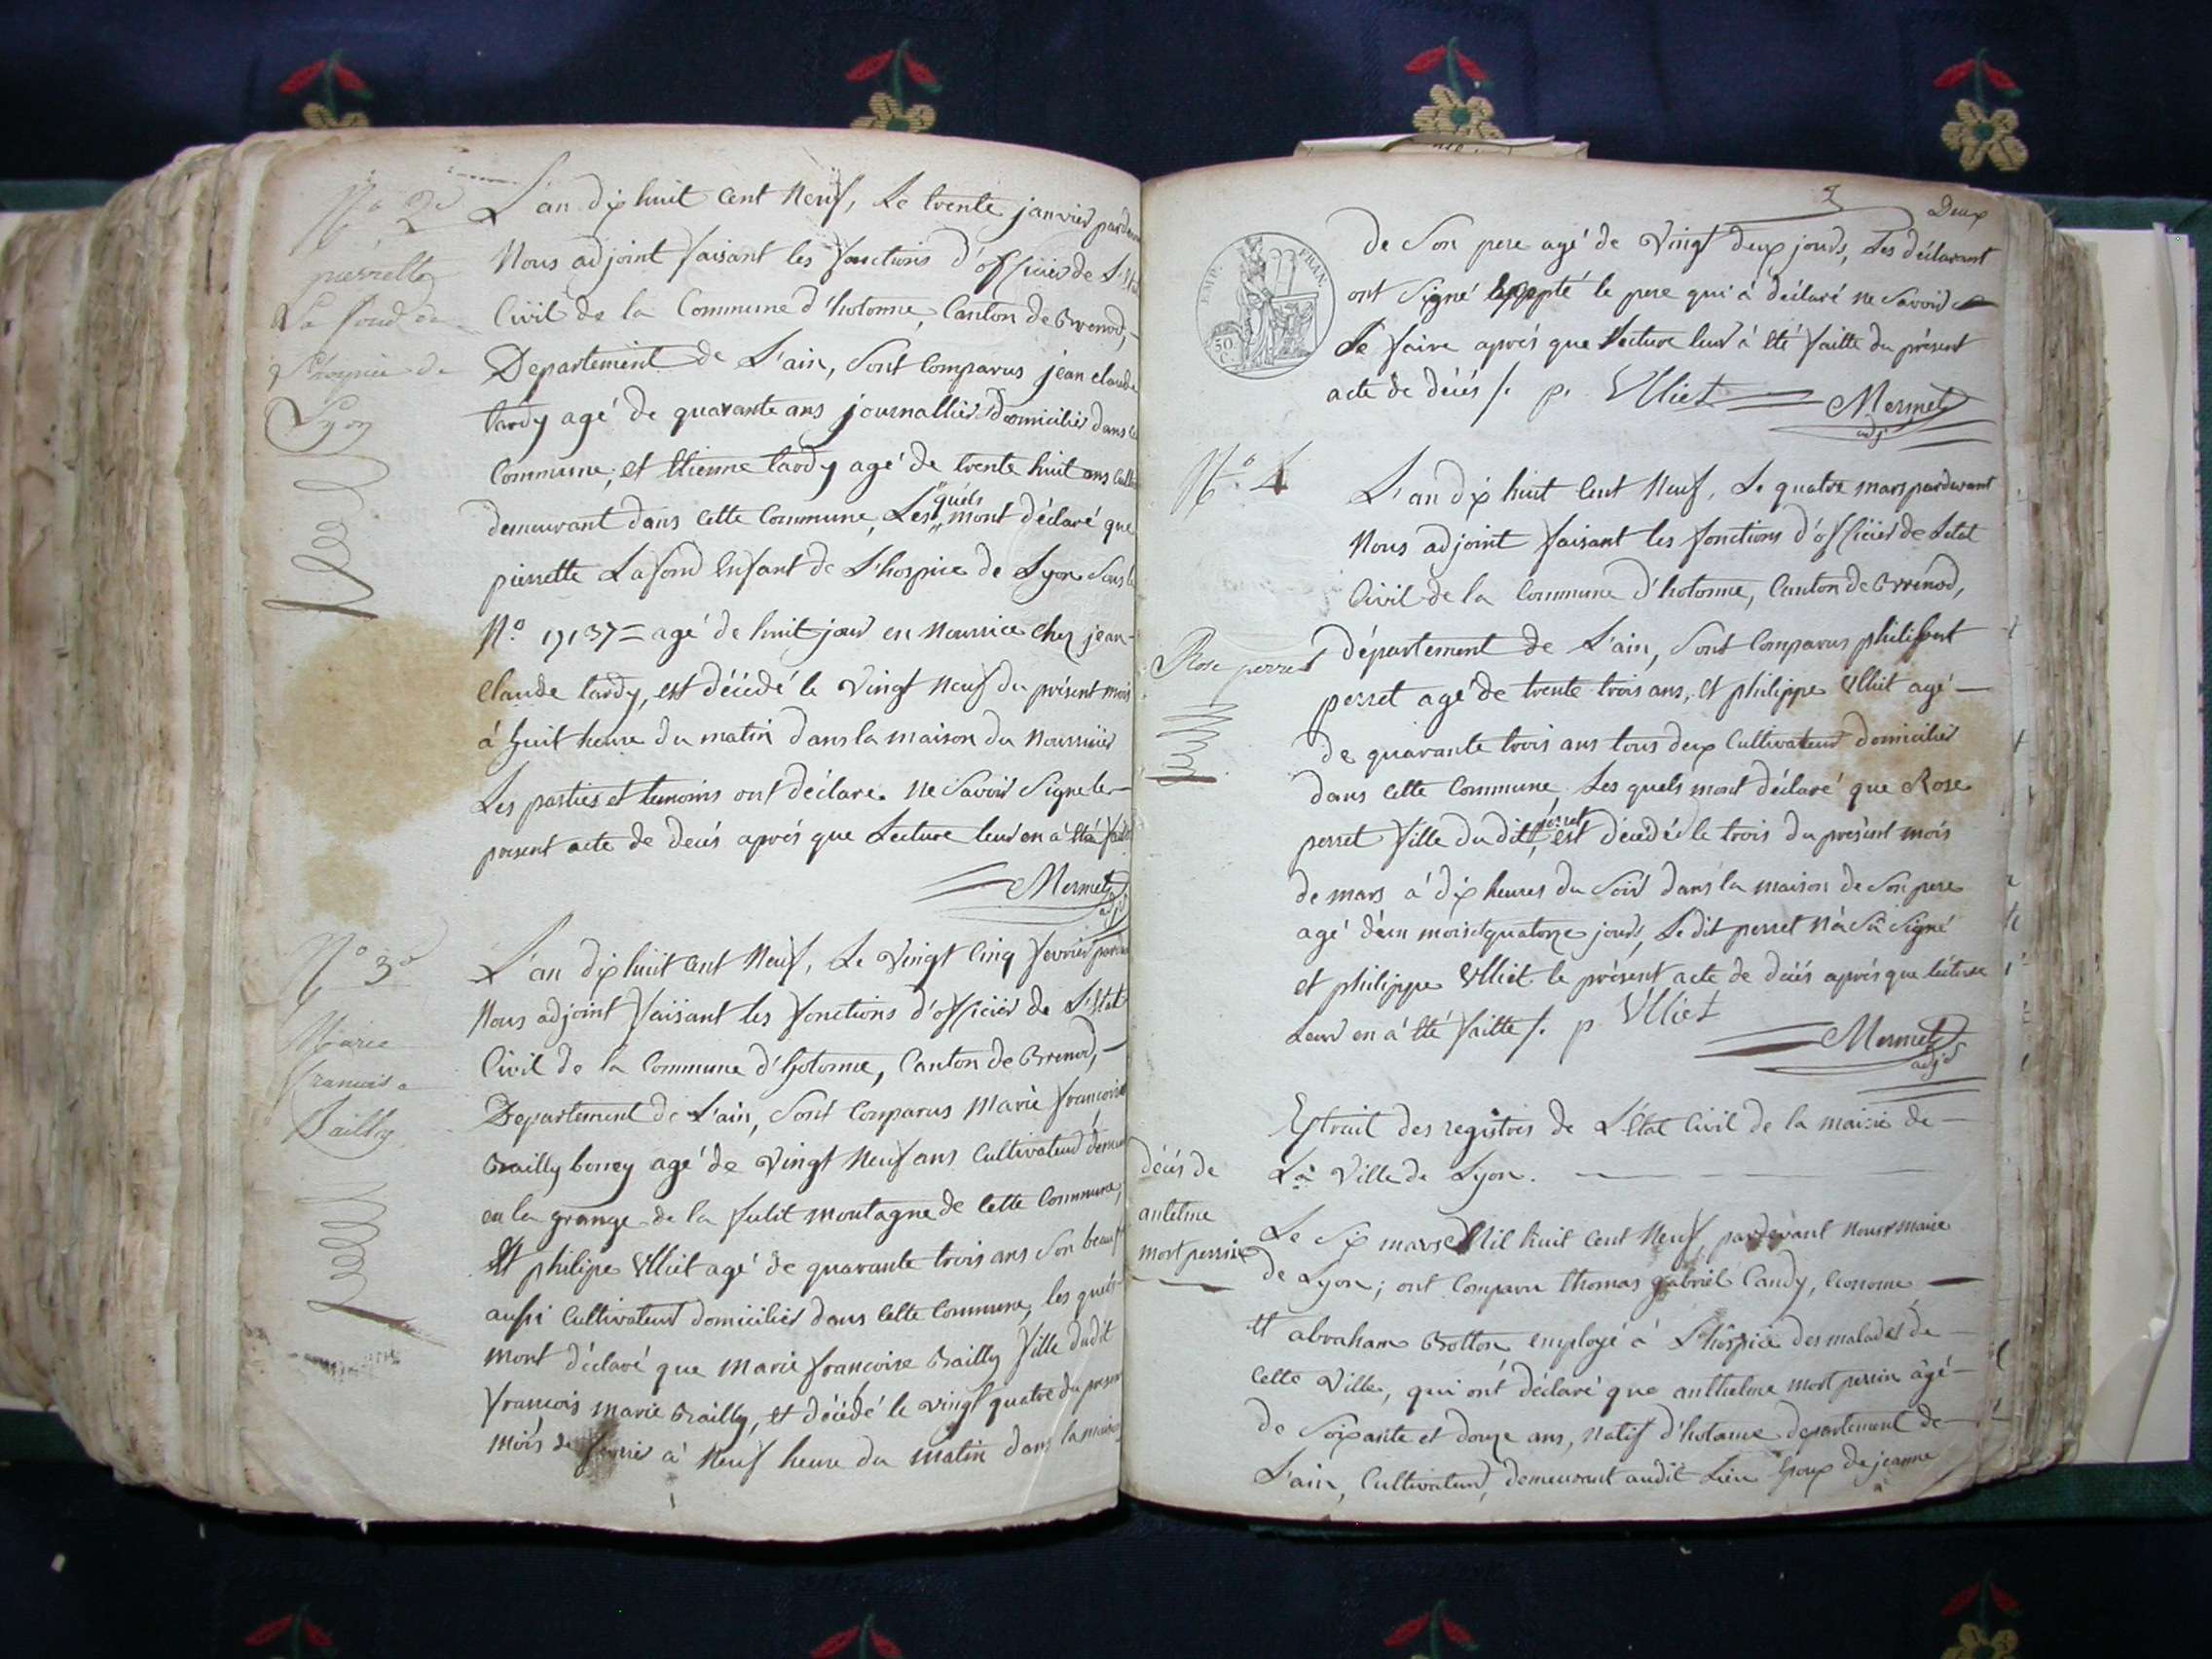 N.o 2.e
pierrette
La fond de
L'hospice de
Lyon
L'an dix huit cent Neuf, Le trente janvier pardevant
Nous adjoint faisant les fonctions d'officier de L'Etat
Civil de la Commune d'hotonne, Canton de Brenod,
Departement de L'ain, Sont Comparus jean claude
tardy agé de quarante ans journallier domicilier dans
Commune, et Etienne tardy agé de trente huit ans
demeurant dans Cette Commune, Lesquels mont déclaré que
pierrette Lafond Enfant de L'hospice de Lyon Sous le
N.o 17137 = agé de huit jour en Nourrice chez jean
Claude tardy, est décédé le vingt Neuf du présent mois
à huit heure du matin dans la maison du Nourricier
Les parties et temoins ont déclaré ne Savoir Signé le
present acte de decés aprés que Lecture leur en à été faitte
Mermet
adjt
N.o 3.e
Marie
francoise
Bailly
L'an dix huit cent Neuf, Le Vingt Cinq fevrier pardevant
Nous adjoint faisant les fonctions d'officier de L'Etat
Civil de la Commune d'hotonne, Canton de Brenod,
Departement de L'ain, Sont Comparus Marie françoise
Bailly agé de Vingt Neuf ans Cultivateur
en la grange de la montagne de Cette Commune,
Et philipe Ulliet agé de quarante trois ans Son beau
aussi Cultivateur domicilier dans Cette Commune, les quels
mont déclaré que Marie francoise Bailly fille dudit
francois marie Bailly, et décédé le vingt quatre du present
mois de fevrier à Neuf heure du matin dans la maison
3 Deux
EMP. FRAN.
50 C.
de Son pere agé de Vingt deux jours, Les déclarant
ont Signé Excepté le pere qui à déclaré ne Savoir
Le faire aprés que Lecture leur à été faitte du présent
acte de decés /. p. Ulliet Mermet
adjt
N.o 4
L'an dix huit Cent Neuf, Le quatre mars pardevant
Nous adjoint faisant les fonctions d'officier de Letat
Civil de la Commune d'hotonne, Canton de Brénod,
Rose perret
département de L'ain, Sont Comparus philibert
perret agé de trente trois ans, et philippe Ulliet agé
de quarante trois ans tous deux Cultivateur domicilier
dans Cette Commune, Les quels mont déclaré que Rose
perret fille dudit perret, est décédé le trois du present mois
de mars à dix heures du Soir dans la maison de Son pere
agé d'un mois et quatorze jours, Le dit perret N'a Sû Signé
et philippe Ulliet le présent acte de decés aprés que lecture
Leur en à été faitte /. p. Ulliet
Mermet
adjt
Extrait des registres de L'Etat Civil de la mairie de
La Ville de Lyon.
décés de
antelme
mort perrin
Le Six mars Mil huit Cent Neuf, pardevant Nous maire
de Lyon; ont Comparu thomas gabriel Candy, Econome,
et abraham Botton employé à L'hospice des malades de
Cette Ville, qui ont déclaré que anthelme mort perrin âgé
de Soixante et douze ans, Natif d'hotonne departement de
L'ain, Cultivateur, demeurant audit Lieu Epoux de jeanne